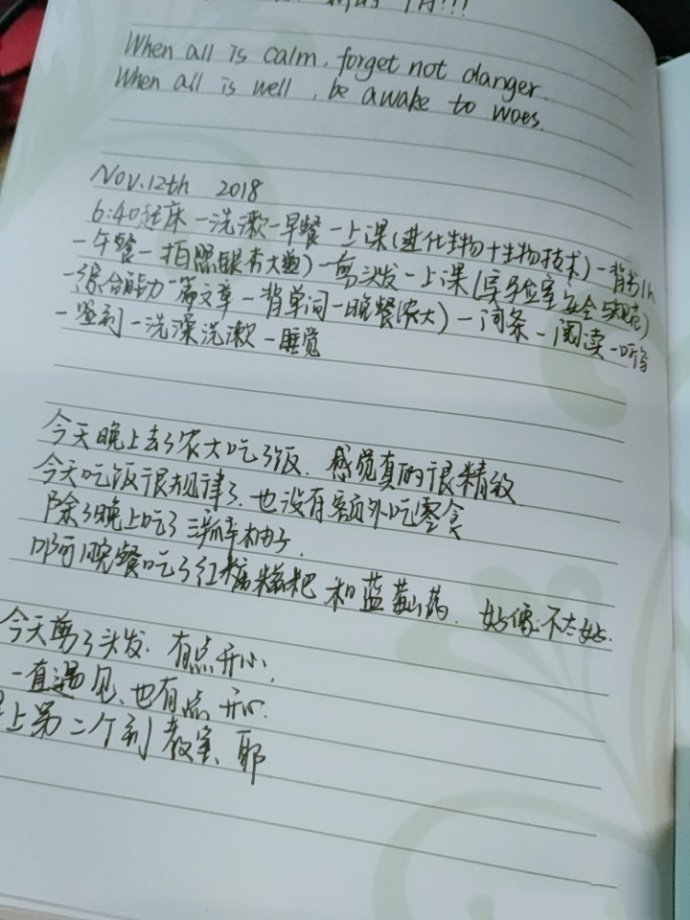 When all is calm, forget not danger.
When all is well, be awake to woes.
Nov.12th 2018
6:40起床-洗漱-早餐-上课(进化生物+生物技术)-背书1h
-午餐-拍照(大
-剪头发-上课(实验室安全规范)
-综合能力一篇文章-背单词-晚餐(农大)-词条-阅读-听写
-签到-洗澡洗漱-睡觉
今天晚上去了农大吃了饭. 感觉真的很精致
今天吃饭很规律了. 也没有额外吃零食
除了晚上吃了三瓣柚子.
啊啊晚餐吃了红糖糍粑和蓝莓山药. 好像不太好.
今天剪了头发. 有点开心.
一直遇见、也有点开心.
早上第二个到教室、耶